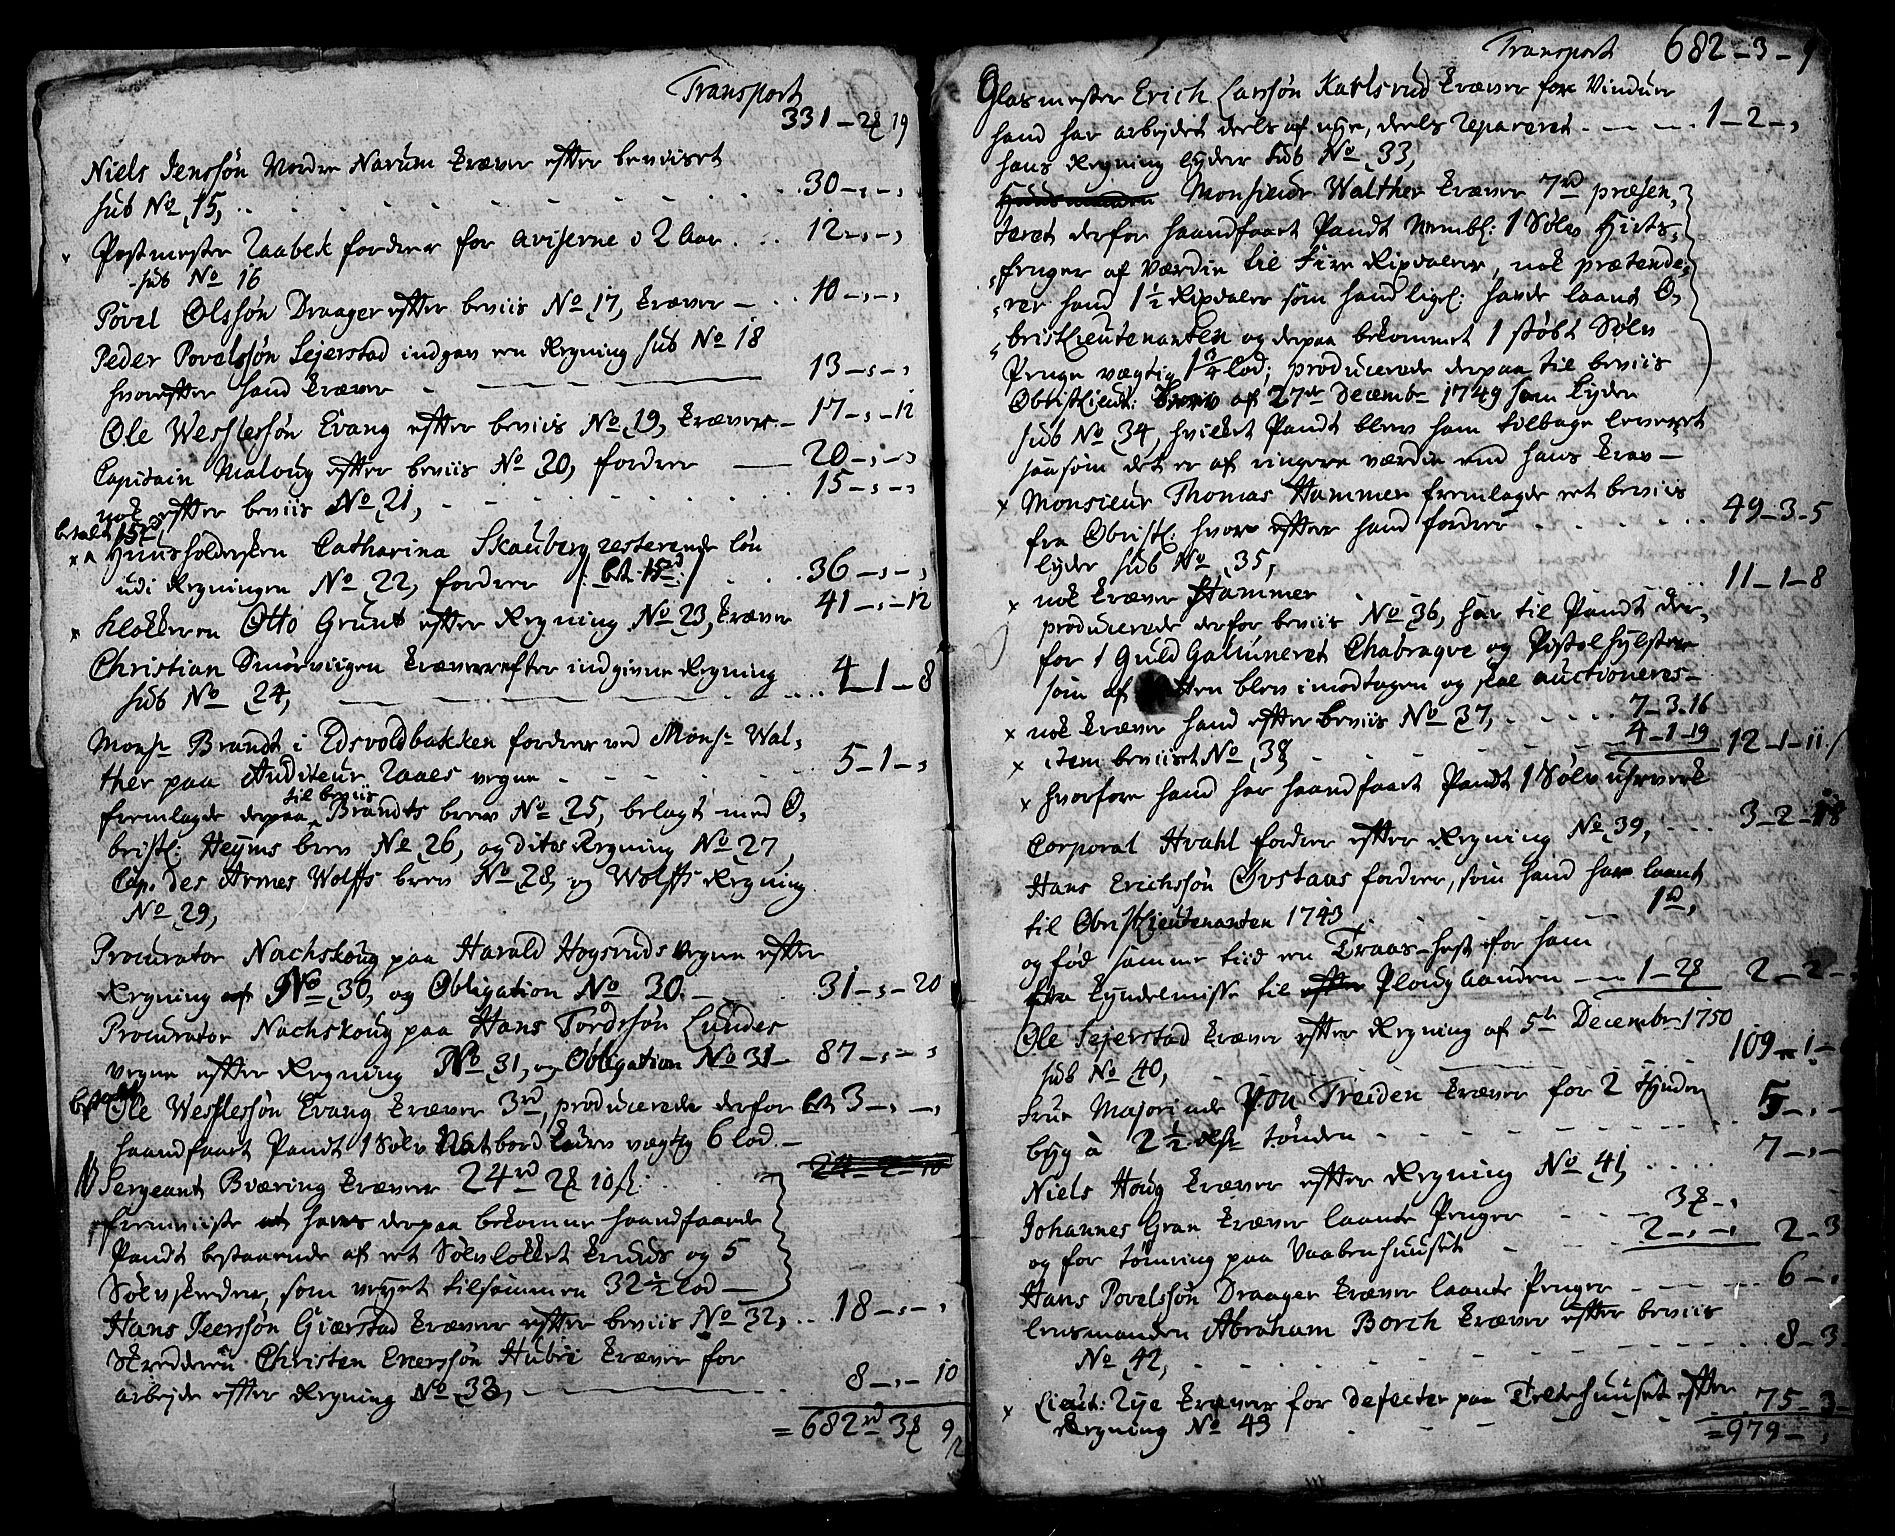 Transport
331 – 2ß 19
Niels Jenssøn Nordre Narum kræver efter beviiset
sub No 15, 30 – , – ,
Postmester Raabek fordrer for aviserne i 2 Aar 12 – , – ,
sub No 16
Povel Olssøn Draager efter beviis No 17, kræver – 10 – , – ,
Peder Povelssøn Sejerstad indgav en Regning sub No 18
hvorefter hand kræver 13 – , – ,
Ole Wesslessøn Evang efter beviis No 19, kræver – 17 – , – 12
Capitain Maloug efter beviis No 20, fordrer 20 – , – ,
nok efter beviis No 21, 15 – , – ,
betalt 15 rd
x Huusholdersken Catharina Skauberg resterende løn
udi Regningen No 22, fordrer /: bet. 15 rd :/ 36 – , – ,
x Klokkeren Otto Grunt efter Regning No 23, kræver 41 – , – 12
Christian Smørviigen kræver efter indgivne Regning
sub No 24, 4 – 1 – 8
Monsr Brandt i Edsvoldbakken fordrer ved Monsr Wal,
ther paa Auditeur Raaes vegne 5 – 1 – ,
til beviis
fremlagde derpaa Brandts brev No 25, belagt med O,
bristl: Heyms brev No 26, og dito Regning No 27,
Cap. des Armes Wolffs brev No 28, og Wolffs Regning
No 29,
Procurator Nachskoug paa Harald Hogsruds vegne efter
Regning No 30, og Obligation No 30. – 31 – , – 20
Procurator Nachskoug paa Hans Tordssøn Lundes
vegne efter Regning No 31, og Obligation No 31 – 87 – , – ,
Ole Wesslessøn Evang kræver 3 rd, producerede derfor bet 3 – , – ,
haandfaaet Pandt 1 Sølv vægtig 6 lod. –
Sergeant Bværing kræver 24 rd 2ß 10 sl: 24 – 2 – 10
fremviiste derpaa bekomme haandfaaede
Pandt bestaaende af et Sølv lokket kruus og 5
Sølvskeeder, som veyet tilsammen 32 ½ lod –
Hans Peerssøn Giærstad kræver efter beviis No 32, 18 – , – ,
Skredderen Christen Enerssøn Hubri kræver for
arbejde efter Regning No 33, 8 – , – 10
= 682 rd 3ß 9/2
Transport 682 – 3 – 9
Glasmester Erich Larssøn Karlsrud kræver for Vinduer
hand har arbejdet deels af nye, deels repareret 1 – 2 – ,
hans Regning lyder sub No 33,
Monsieur Walther kræver 7 rd præsen,
teret derfor haandfaaet Pandt Nembl: 1 Sølv
af Værdie til fire Rixdaler, nok prætende,
rer hand 1 ½ Rixdaler som hand ligel: havde laant O,
bristLieutenanten og derpaa bekommet 1 støbt Sølv
Penge vægtig 1 ¾ lod; producerede derpaa til beviis
Obristlieut: brev af 27de Decembr 1749 som lyder
sub No 34, hvilket Pandt blev ham tilbage leveret
saasom det er af ringere værdie end hans krav –
x Monsieur Thomas Hammer fremlagde et beviis
fra Obristl: hvor efter hand fordrer 49 – 3 – 5
lyder sub No 35,
x nok kræver Hammer 11 – 1 – 8
producerede derfor beviis No 36, har til Pandt der,
for 1 Guld Galluneret Chabraque og Pistolhylster
som af Retten blev imodtagen og skal auctioneres –
x nok kræver hand efter beviis No 37, 7 – 3 – 16
x item beviiset No 38 4 – 1 – 19 12 – 1 – 11
x hvorfore hand har haandfaaet Pandt 1 Sølv uhrverk
Corporal Hvahl fordrer efter Regning No 39, 3 – 2 – 18
Hans Erichssøn Øvstaus fordrer, som hand har laant
til ObristLieutenanten 1743 1 rd,
og fød samme tiid en Traas-hest for ham
fra Kyndelmisse til Plougaanden 1 – 2ß 2 – 2 –
Ole Sejerstad kræver efter Regning af 5te Decembr 1750
sub No 40, 109 – 1 –
Frue Majorinde von Treiden kræver for 2 tynder
byg à 2 ½ tønden 5 – , –
Niels Houg kræver efter Regning No 41, 7 – , –
Johannes Gran kræver laante Penger 3ß – ,
og for tømring paa Vaabenhuuset 2 – , – , 2 – 3
Hans Povelssøn Draager kræver laante Penger 6 – ,
lensmanden Abraham Borch kræver efter beviis
No 42, 8 – 3
x Lieut: Rye kræver for defecter paa Telthuuset efter
Regning No 43 75 – 3 –
= 979 – ,